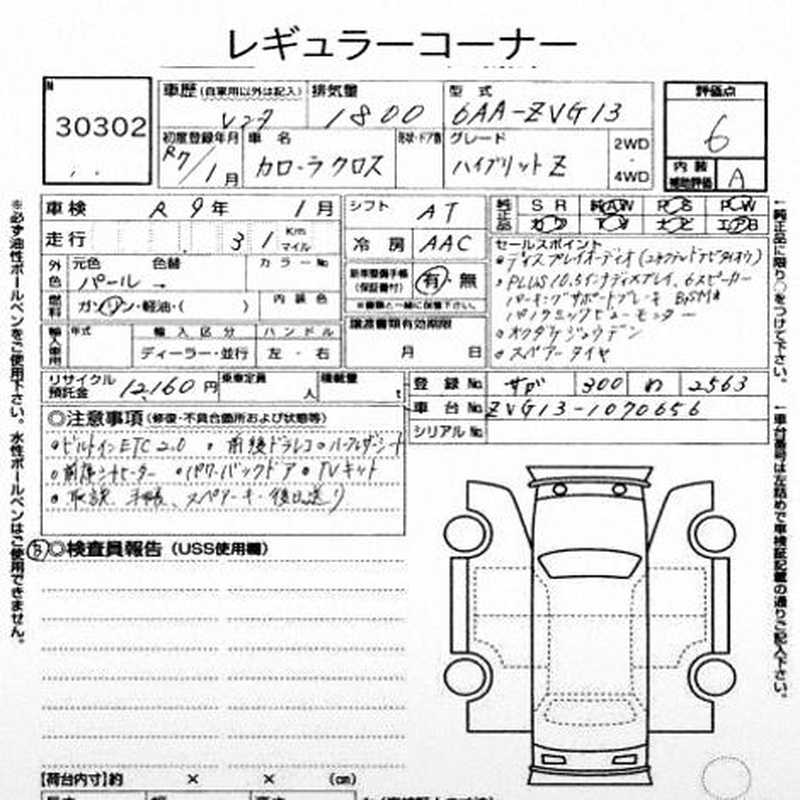 レギュラーコーナー
N
30302
車歴 (自家用以外は記入) 排気量 型式 評価点
レンタ 1800 6AA-ZVG13 6
初度登録年月 車名 形状・ドア数 グレード 2WD ・ 4WD
R7/1月 カローラクロス ハイブリットZ
内装補助評価 A
車検 R 9年 1月
走行 31 Km マイル
外色 元色 色替 カラーNo
パール →
燃料 ガソリン・軽油・( ) 内装色
輸入車用 年式 輸入区分 ハンドル
ディーラー・並行 左・右
シフト AT
冷房 AAC
新車整備手帳(保証書付) 有・無
※書類と一緒に保管下さい。
譲渡書類有効期限
月 日
純正品 SR 純AW PS PW
カワ TV ナビ エアB
セールスポイント
●ディスプレイオーディオ(コネクティッドナビタイオウ)
●PLUS10.5インチディスプレイ、6スピーカー
パーキングサポートブレーキ BSM
パノラミックビューモニター
●オクダケジュウデン
●スペアータイヤ
リサイクル預託金 12,160円 乗車定員 人 積載量 t
登録No. 300 わ 2563
車台No. ZVG13-1070656
シリアルNo.
◎注意事項 (修復・不具合箇所および状態等)
●ビルトインETC2.0 ●前後ドラレコ ●ハーフレザーシート
●前席シートヒーター ●パワーバックドア ●TVキット
●取説、手帳、スペアーキー後日送り
③◎検査員報告 (USS使用欄)
【荷台内寸】約 × × (cm)
※必ず油性ボールペンをご使用下さい。水性ボールペンはご使用できません。
↑純正品に限り○をつけて下さい。
↑車台番号は左詰めで車検証記載の通りご記入下さい。